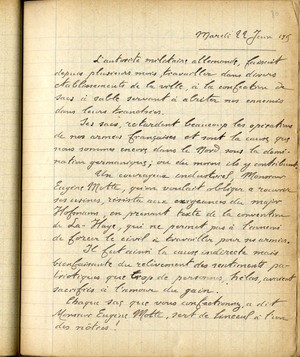 Mardi 22 Juin 1915
L'autorité militaire allemande, faisait
depuis plusieurs mois travailler dans divers
établissements de la ville, à la confection de
sacs à sable servant à abriter nos ennemis
dans leurs tranchées.
Ces sacs, retardent beaucoup les opérations
de nos armées françaises et sont la cause que
nous sommes encore dans le Nord sous la domi-
nation germanique; ou du moins ils y contribuent.
Un courageux industriel, Monsieur
Eugène Motte, qu'on voulait obliger à rouvrir
ses usines, résista aux exigeances du major
Hofmann, en prenant texte de la convention
de La-Haye, qui ne permet pas à l'ennemi
de forcer le civil à travailler pour ses armées.
Il fut ainsi la cause indirecte mais
bienfaisante du relèvement des sentiments pa-
triotiques que trop de personnes, hélas, avaient
sacrifiés à l'amour du gain.
Chaque sac que vous confectionnez, a dit
Monsieur Eugène Motte, sert de linceul à l'un
des nôtres!